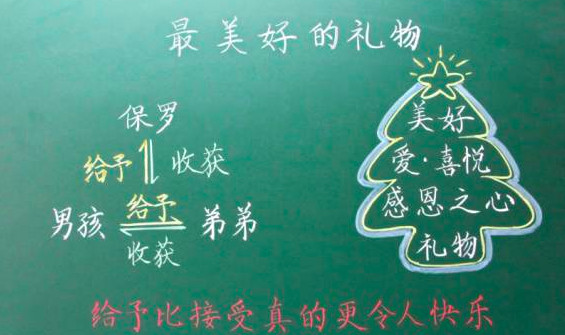 最美好的礼物
保罗
给予 收获
男孩 给予 弟弟
收获
美好
爱·喜悦
感恩之心
礼物
给予比接受真的更令人快乐